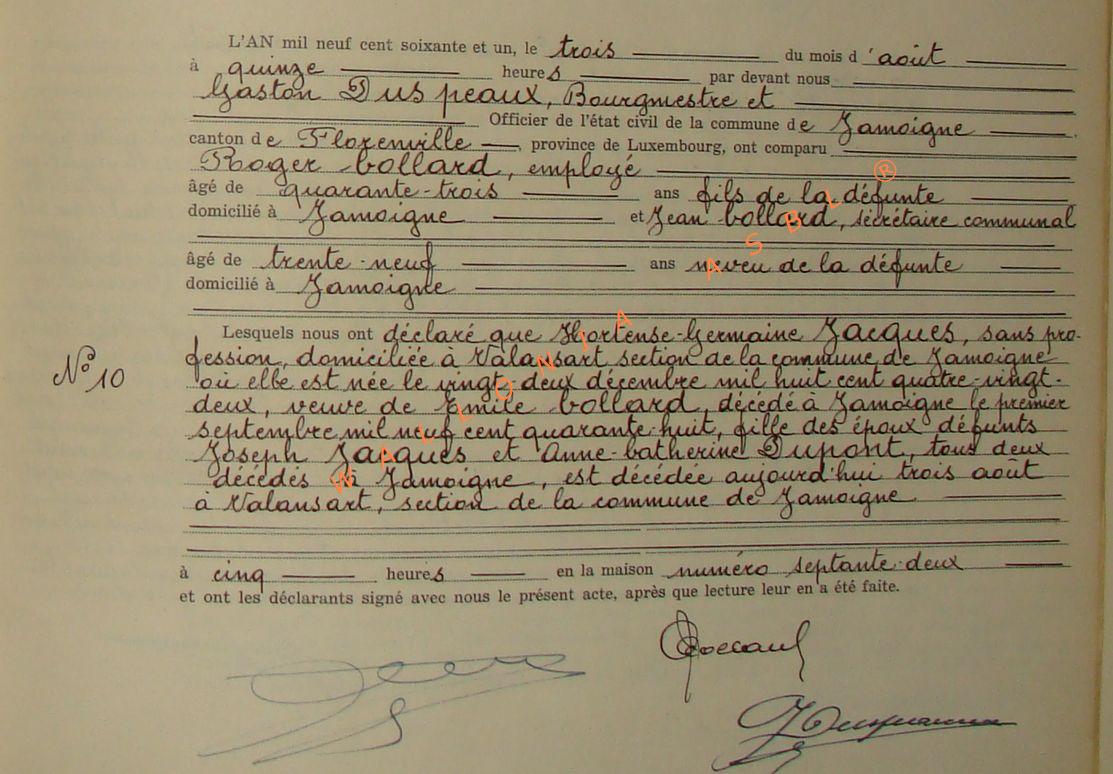 L'AN mil neuf cent soixante et un, le trois du mois d'août
à quinze heures par devant nous
Gaston Duspeaux, Bourgmestre et
Officier de l'état civil de la commune de Jamoigne
canton de Florenville, province de Luxembourg, ont comparu
Roger Collard, employé
âgé de quarante-trois ans fils de la défunte
domicilié à Jamoigne et Jean Collard, secrétaire communal
âgé de trente-neuf ans neveu de la défunte
domicilié à Jamoigne
Lesquels nous ont déclaré que Hortense-Germaine Jacques, sans pro-
N° 10
fession, domiciliée à Valansart section de la commune de Jamoigne
où elle est née le vingt-deux décembre mil huit cent quatre-vingt-
deux, veuve de Emile Collard, décédé à Jamoigne le premier
septembre mil neuf cent quarante-huit, fille des époux défunts
Joseph Jacques et Anne-Catherine Dupont, tous deux
décédés à Jamoigne, est décédée aujourd'hui trois août
à Valansart, section de la commune de Jamoigne
à cinq heures en la maison numéro septante-deux
et ont les déclarants signé avec nous le présent acte, après que lecture leur en a été faite.
WALLONIA ASBL ®